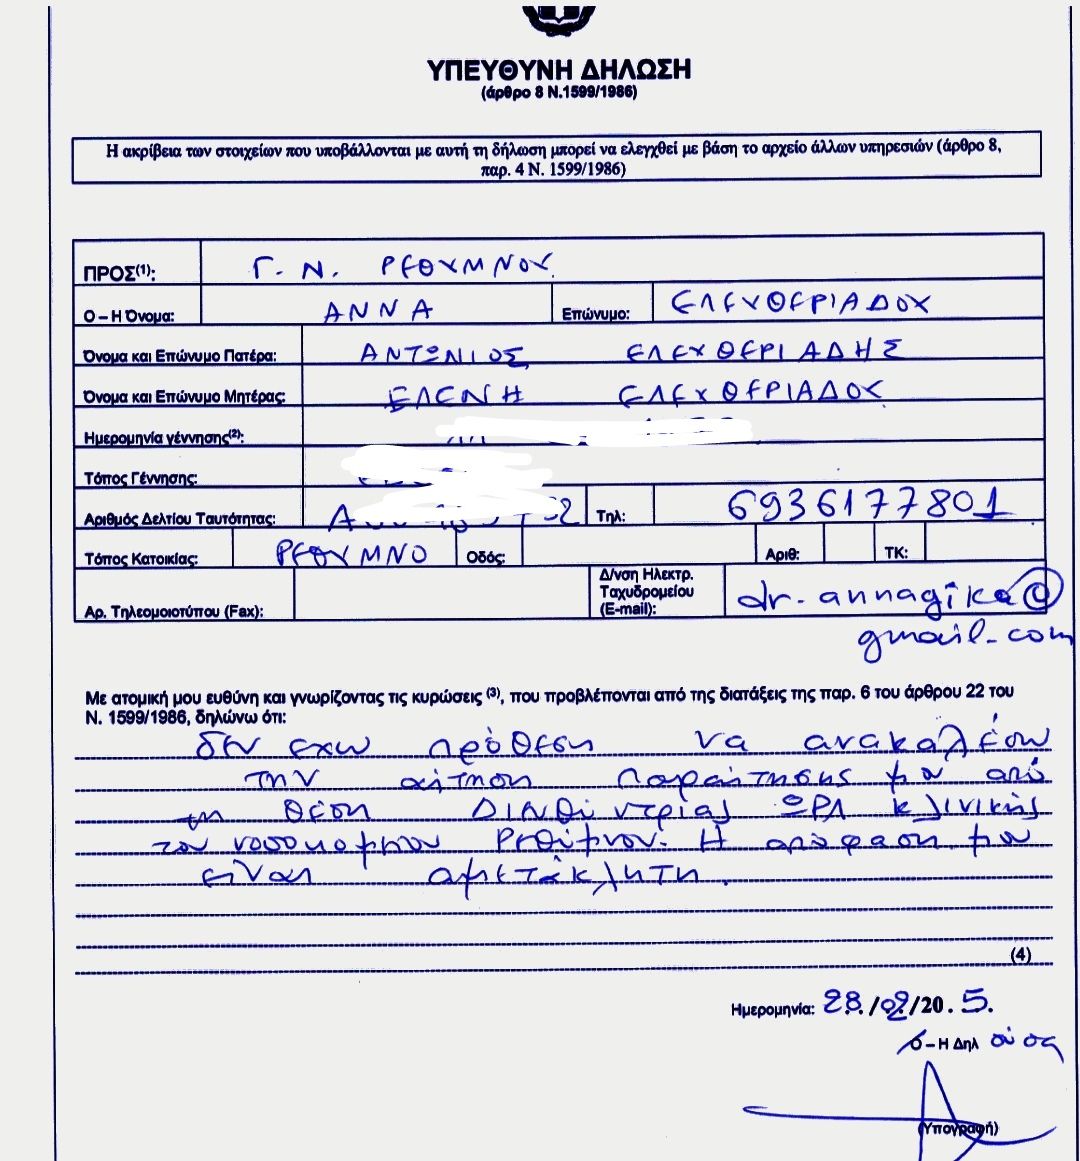 ΥΠΕΥΘΥΝΗ ΔΗΛΩΣΗ
(άρθρο 8 Ν.1599/1986)
Η ακρίβεια των στοιχείων που υποβάλλονται με αυτή τη δήλωση μπορεί να ελεγχθεί με βάση το αρχείο άλλων υπηρεσιών (άρθρο 8,
παρ. 4 Ν. 1599/1986)
ΠΡΟΣ(1): Γ. Ν. ΡΕΘΥΜΝΟΥ
Ο – Η Όνομα: ΑΝΝΑ Επώνυμο: ΕΛΕΥΘΕΡΙΑΔΟΥ
Όνομα και Επώνυμο Πατέρα: ΑΝΤΩΝΙΟΣ ΕΛΕΥΘΕΡΙΑΔΗΣ
Όνομα και Επώνυμο Μητέρας: ΕΛΕΝΗ ΕΛΕΥΘΕΡΙΑΔΟΥ
Ημερομηνία γέννησης(2):
Τόπος Γέννησης:
Αριθμός Δελτίου Ταυτότητας: Τηλ: 6936177801
Τόπος Κατοικίας: ΡΕΘΥΜΝΟ Οδός: Αριθ: ΤΚ:
Αρ. Τηλεομοιοτύπου (Fax): Δ/νση Ηλεκτρ.
Ταχυδρομείου
(E-mail): dr.annagika@
gmail.com
Με ατομική μου ευθύνη και γνωρίζοντας τις κυρώσεις (3), που προβλέπονται από της διατάξεις της παρ. 6 του άρθρου 22 του
Ν. 1599/1986, δηλώνω ότι:
δεν έχω πρόθεση να ανακαλέσω
την αίτηση παραίτησης μου από
τη θέση Διευθύντριας ΩΡΛ κλινικής
του νοσοκομείου Ρεθύμνου. Η απόφαση μου
είναι αμετάκλητη.
(4)
Ημερομηνία: 28./02/20.5.
Ο – Η Δηλ ούσα
(Υπογραφή)